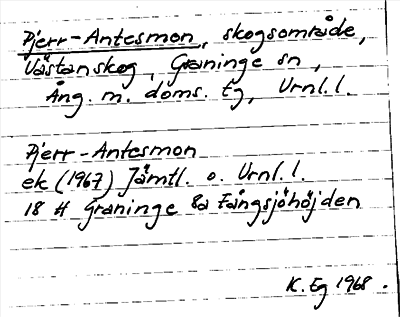 Pjerr-Antesmon, skogsområde,
Västanskog, Graninge sn,
Ång. m. doms. Eg, Vrnl.l.
Pjerr-Antesmon
ek (1967) Jämtl. o. Vrnl.l.
18 H Graninge 8a Fångsjöhöjden
K. Eg 1968.